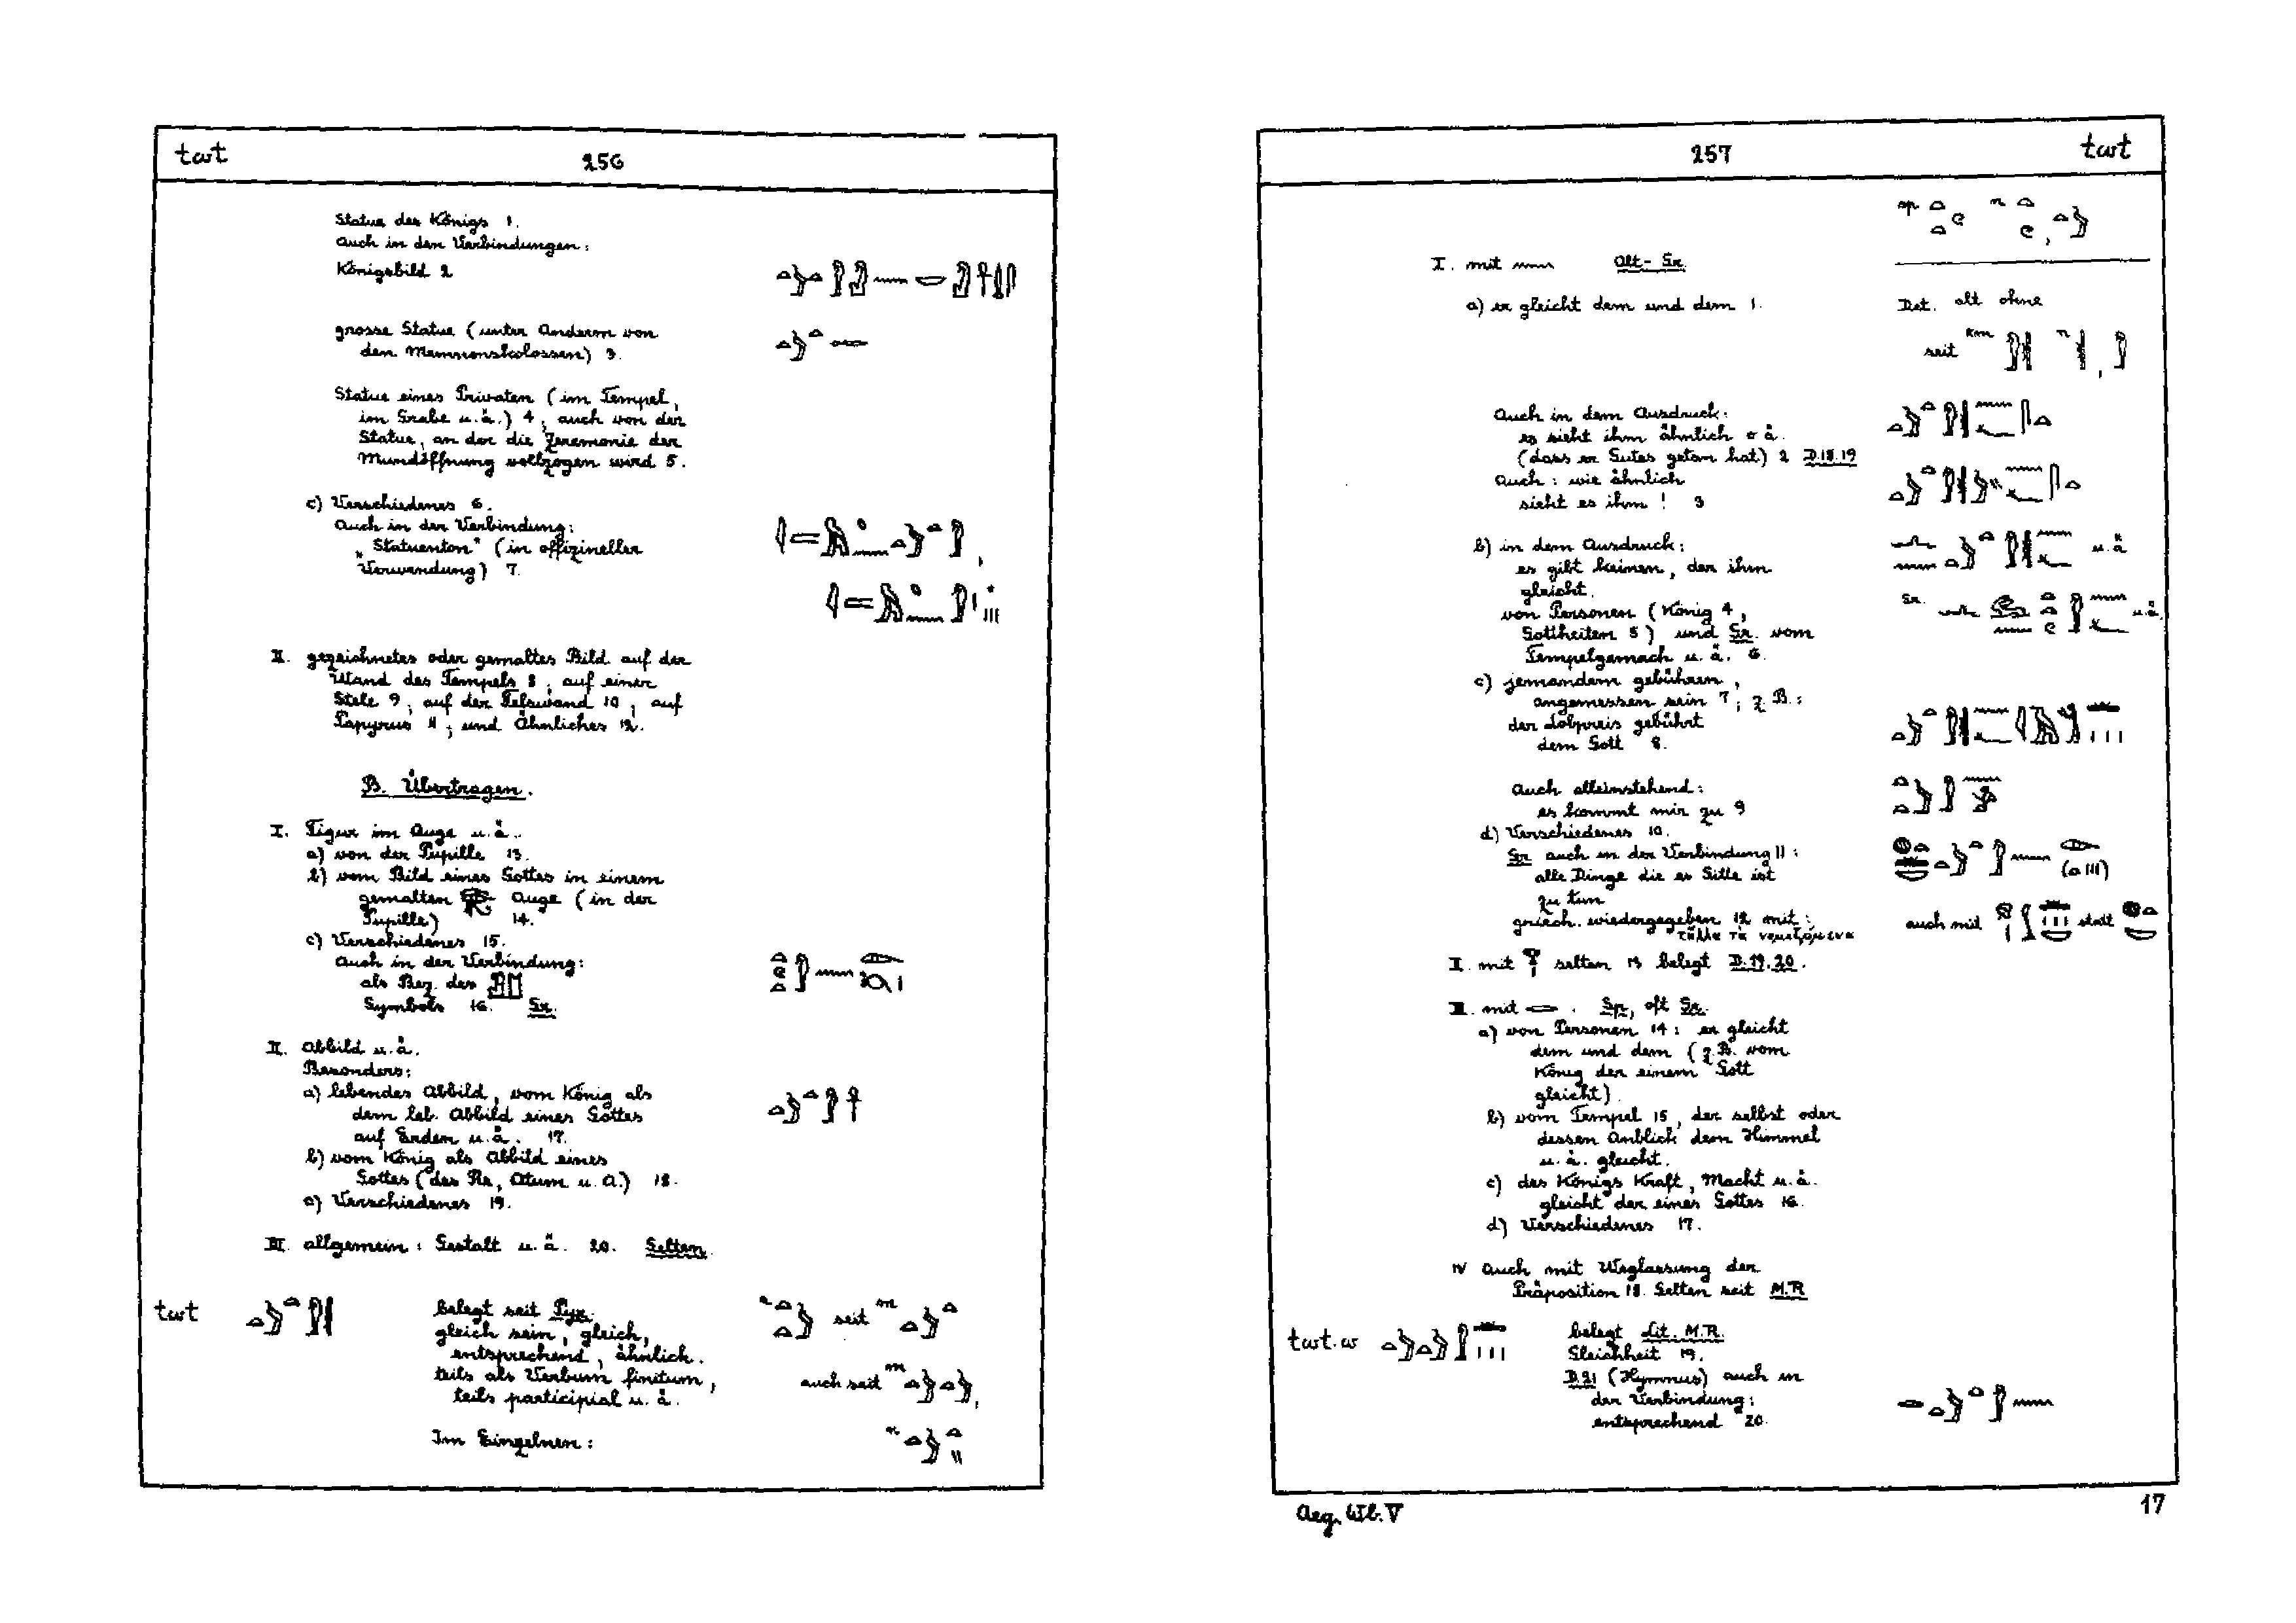 twt 256
Statue des Königs 1.
Auch in den Verbindungen:
Königsbild 2
grosse Statue (unter Anderem von
den Memnonskolossen) 3.
Statue eines Privaten (im Tempel,
im Grabe u.ä.) 4, auch von der
Statue, an der die Zeremonie der
Mundöffnung vollzogen wird 5.
c) Verschiedenes 6.
Auch in der Verbindung:
"Statuenton" (in offizineller
Verwendung) 7.
II. gezeichnetes oder gemaltes Bild auf der
Wand des Tempels 8, auf einer
Stele 9, auf der Felswand 10, auf
Papyrus 11, und Ähnliches 12.
B. Übertragen.
I. Figur im Auge u.ä.
a) von der Pupille 13.
b) vom Bild eines Gottes in einem
gemalten Auge (in der
Pupille) 14.
c) Verschiedenes 15.
Auch in der Verbindung:
als Bez. des
Symbols 16. Gr.
II. Abbild u.ä.
Besonders:
a) lebendes Abbild, vom König als
dem leb. Abbild eines Gottes
auf Erden u.ä. 17.
b) vom König als Abbild eines
Gottes (des Re, Atum u.a.) 18.
c) Verschiedenes 19.
III. allgemein: Gestalt u.ä. 20. Selten.
twt belegt seit Pyr. seit m
gleich sein, gleich,
entsprechend, ähnlich.
teils als Verbum finitum, auch seit m
teils participial u.ä.
Im Einzelnen: n
257 twt
sp n
I. mit Alt-Gr.
a) er gleicht dem und dem 1. Det. alt ohne
seit
Auch in dem Ausdruck:
es sieht ihm ähnlich o ä.
(dass er Gutes getan hat) 2 D.18.19
Auch: wie ähnlich
sieht es ihm! 3
b) in dem Ausdruck: u.ä
es gibt keinen, der ihm
gleicht.
von Personen (König 4, Gr. u.ä.
Gottheiten 5) und Gr. vom
Tempelgemach u.ä. 6.
c) jemandem gebühren,
angemessen sein 7; z.B.:
der Lobpreis gebührt
dem Gott 8.
Auch alleinstehend:
es kommt mir zu 9
d) Verschiedenes 10.
Gr. auch in der Verbindung 11:
alle Dinge die es Sitte ist
zu tun
griech. wiedergegeben 12 mit: auch mit statt
τἄλλα τὰ νομιζόμενα
II. mit selten 13 belegt D.19.20.
III. mit . Sp, oft Gr.
a) von Personen 14: er gleicht
dem und dem (z.B. vom
König der einem Gott
gleicht).
b) vom Tempel 15, der selbst oder
dessen Anblick dem Himmel
u.ä. gleicht.
c) des Königs Kraft, Macht u.ä.
gleicht der eines Gottes 16.
d) Verschiedenes 17.
IV Auch mit Weglassung der
Präposition 18. Selten seit M.R
twt.w belegt Lit. M.R.
Gleichheit 19.
D.21 (Hymnus) auch in
der Verbindung:
entsprechend 20.
Aeg. Wb. V 17